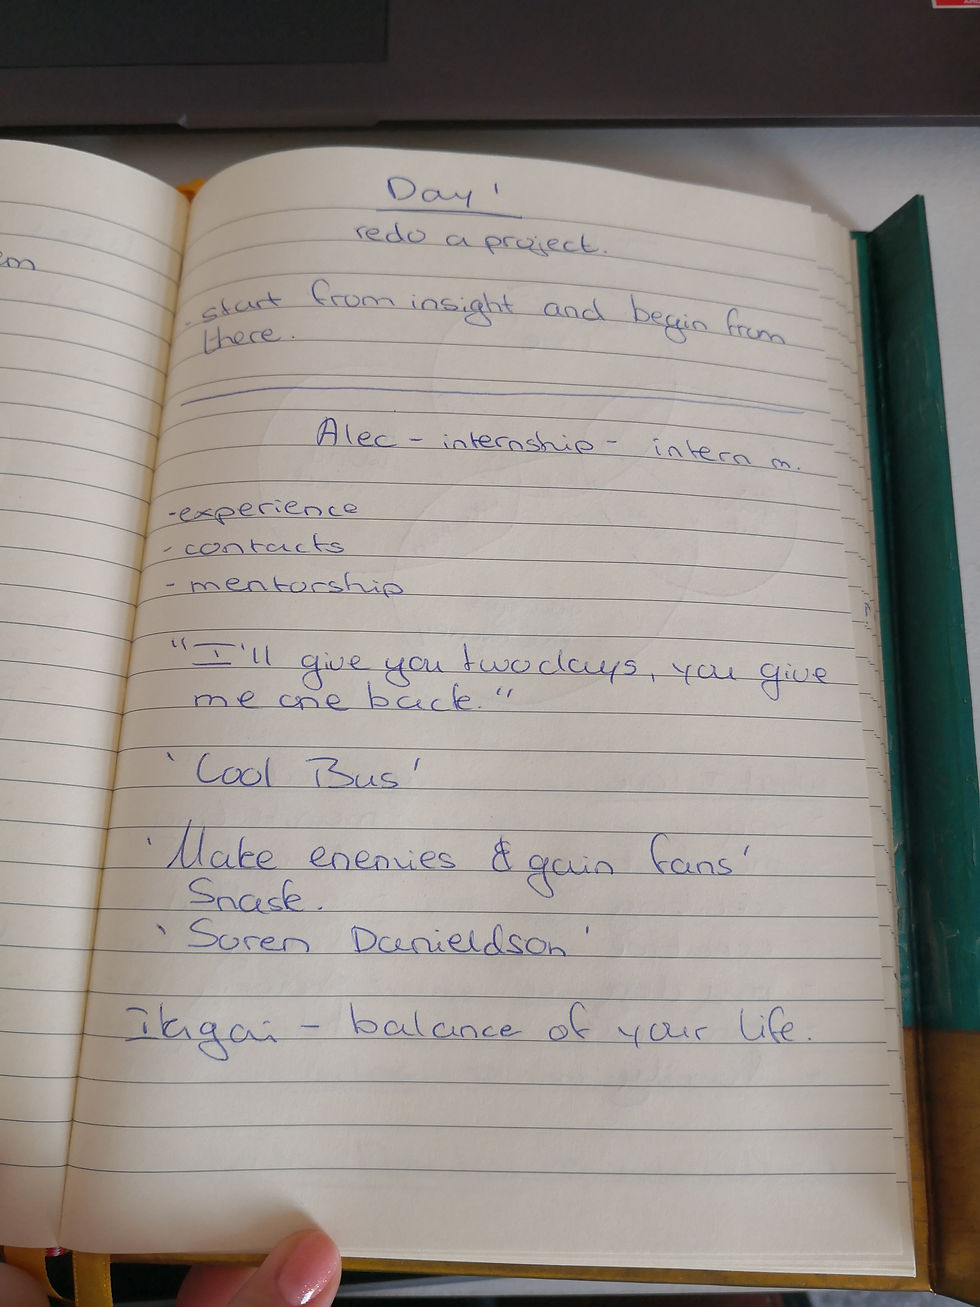 Day 1
redo a project.
em
- start from insight and begin from
there.
Alec - internship - intern m.
- experience
- contacts
- mentorship
"I'll give you two days, you give
me one back."
'Cool Bus'
'Make enemies & gain fans'
Snask.
'Soren Danieldson'
Ikigai - balance of your life.